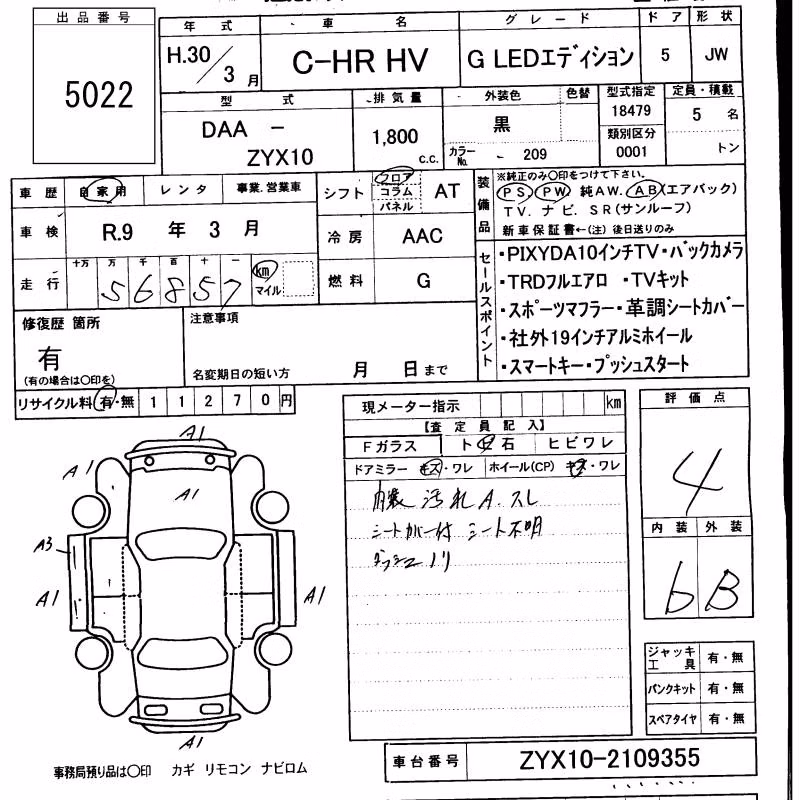 出品番号
5022
年式 車名 グレード ドア 形状
H.30/3月 C-HR HV G LEDエディション 5 JW
型式 排気量 外装色 色替 型式指定 定員・積載
DAA - ZYX10 1,800 C.C. 黒 18479 5名
カラーNo. - 209 類別区分 0001 トン
車歴 自家用 レンタ 事業.営業車
シフト フロア コラム パネル AT
装備品
※純正のみ○印をつけて下さい。
PS. PW. 純AW. AB(エアバック)
TV. ナビ. SR(サンルーフ)
新車保証書←(注) 後日送りのみ
車検 R.9 年 3 月
冷房 AAC
走行 十万 万 千 百 十 一
56857 km マイル
燃料 G
セールスポイント
・PIXYDA10インチTV・バックカメラ
・TRDフルエアロ ・TVキット
・スポーツマフラー・革調シートカバー
・社外19インチアルミホイール
・スマートキー・プッシュスタート
修復歴 箇所
有
(有の場合は○印を)
注意事項
名変期日の短い方 月 日まで
リサイクル料 有・無 11270円
現メーター指示 km
【査定員記入】
Fガラス ト ビ 石 ヒビワレ
ドアミラー キズ・ワレ ホイール(CP) キズ・ワレ
内装 汚れ A. スレ
シートカバー付 シート不明
ダッシュノリ
評価点
4
内装 外装
b B
A1
A1
A1
A1
A3
A1
A1
A1
A1
ジャッキ工具 有・無
パンクキット 有・無
スペアタイヤ 有・無
事務局預り品は○印 カギ リモコン ナビロム
車台番号 ZYX10-2109355